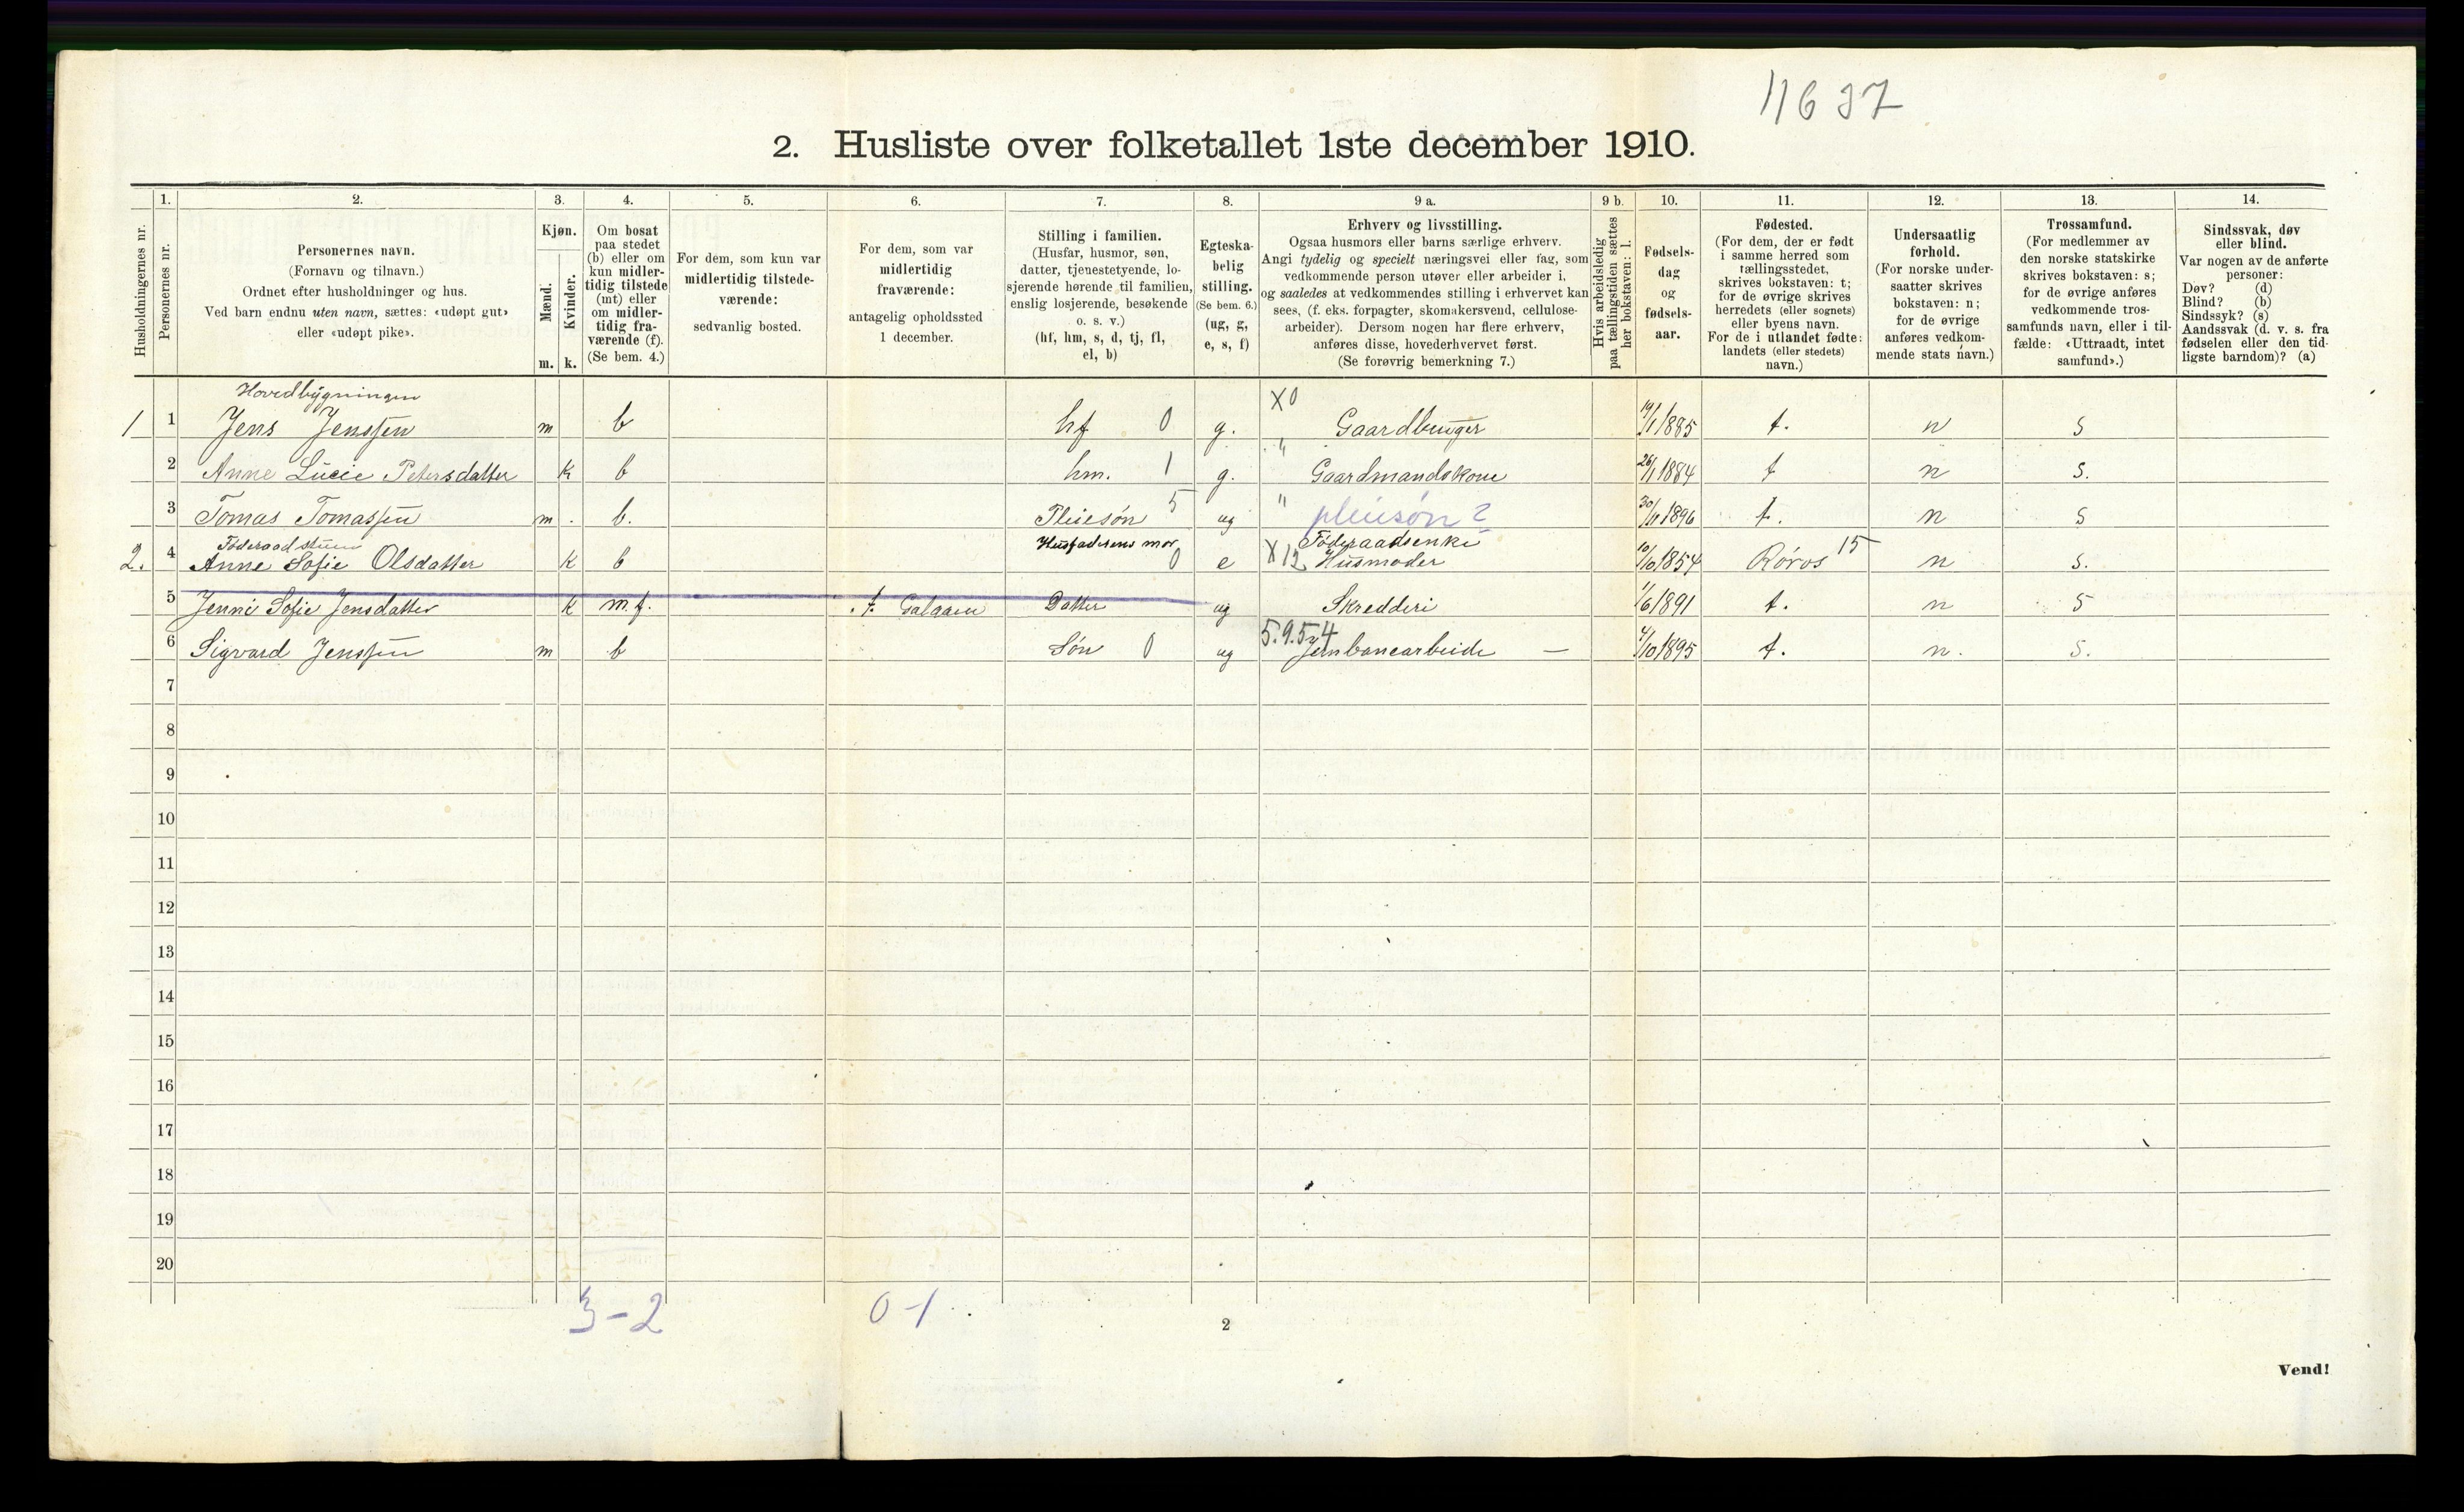 11637
2. Husliste over folketallet 1ste december 1910.
Husholdningernes nr.
1.
Personernes nr.
2.
Personernes navn.
(Fornavn og tilnavn.)
Ordnet efter husholdninger og hus.
Ved barn endnu uten navn, sættes: «udøpt gut»
eller «udøpt pike».
3.
Kjøn.
Mænd.
Kvinder.
m. k.
4.
Om bosat
paa stedet
(b) eller om
kun midler-
tidig tilstede
(mt) eller
om midler-
tidig fra-
værende (f).
(Se bem. 4.)
5.
For dem, som kun var
midlertidig tilstede-
værende:
sedvanlig bosted.
6.
For dem, som var
midlertidig
fraværende:
antagelig opholdssted
1 december.
7.
Stilling i familien.
(Husfar, husmor, søn,
datter, tjenestetyende, lo-
sjerende hørende til familien,
enslig losjerende, besøkende
o. s. v.)
(hf, hm, s, d, tj, fl,
el, b)
8.
Egteska-
belig
stilling.
(Se bem. 6.)
(ug, g,
e, s, f)
9 a.
Erhverv og livsstilling.
Ogsaa husmors eller barns særlige erhverv.
Angi tydelig og specielt næringsvei eller fag, som
vedkommende person utøver eller arbeider i,
og saaledes at vedkommendes stilling i erhvervet kan
sees, (f. eks. forpagter, skomakersvend, cellulose-
arbeider). Dersom nogen har flere erhverv,
anføres disse, hovederhvervet først.
(Se forøvrig bemerkning 7.)
9 b.
Hvis arbeidsledig
paa tællingstiden sættes
her bokstaven: l.
10.
Fødsels-
dag
og
fødsels-
aar.
11.
Fødested.
(For dem, der er født
i samme herred som
tællingsstedet,
skrives bokstaven: t;
for de øvrige skrives
herredets (eller sognets)
eller byens navn.
For de i utlandet fødte:
landets (eller stedets)
navn.)
12.
Undersaatlig
forhold.
(For norske under-
saatter skrives
bokstaven: n;
for de øvrige
anføres vedkom-
mende stats navn.)
13.
Trossamfund.
(For medlemmer av
den norske statskirke
skrives bokstaven: s;
for de øvrige anføres
vedkommende tros-
samfunds navn, eller i til-
fælde: «Uttraadt, intet
samfund».)
14.
Sindssvak, døv
eller blind.
Var nogen av de anførte
personer:
Døv? (d)
Blind? (b)
Sindssyk? (s)
Aandssvak (d. v. s. fra
fødselen eller den tid-
ligste barndom)? (a)
Hovedbygningen
1 1 Jens Jenssen m b hf 0 g. X0 Gaardbruger 19/1 1885 t. n s
2 Anne Lucie Petersdatter k b hm. 1 g. " Gaardmandskone 26/1 1884 t n s.
3 Tomas Tomassen m. b. Pleiesøn 5 ug " pleiesøn? 30/11 1896 t. n s
Föderaadstuen Husfaderens mor Föderaadsenke
2. 4 Anne Sofie Olsdatter k b 0 e X12 Husmoder 10/10 1854 Röros 15 n s.
5 Jenni Sofie Jensdatter k m.f. t. Galaaen Datter ug Skredderi 11/6 1891 t. n s
6 Sigvard Jenssen m b Søn 0 ug 5.9.54 Jernbanearbeide — 4/10 1895 t. n. s.
7
8
9
10
11
12
13
14
15
16
17
18
19
20
3-2 0-1
2
Vend!